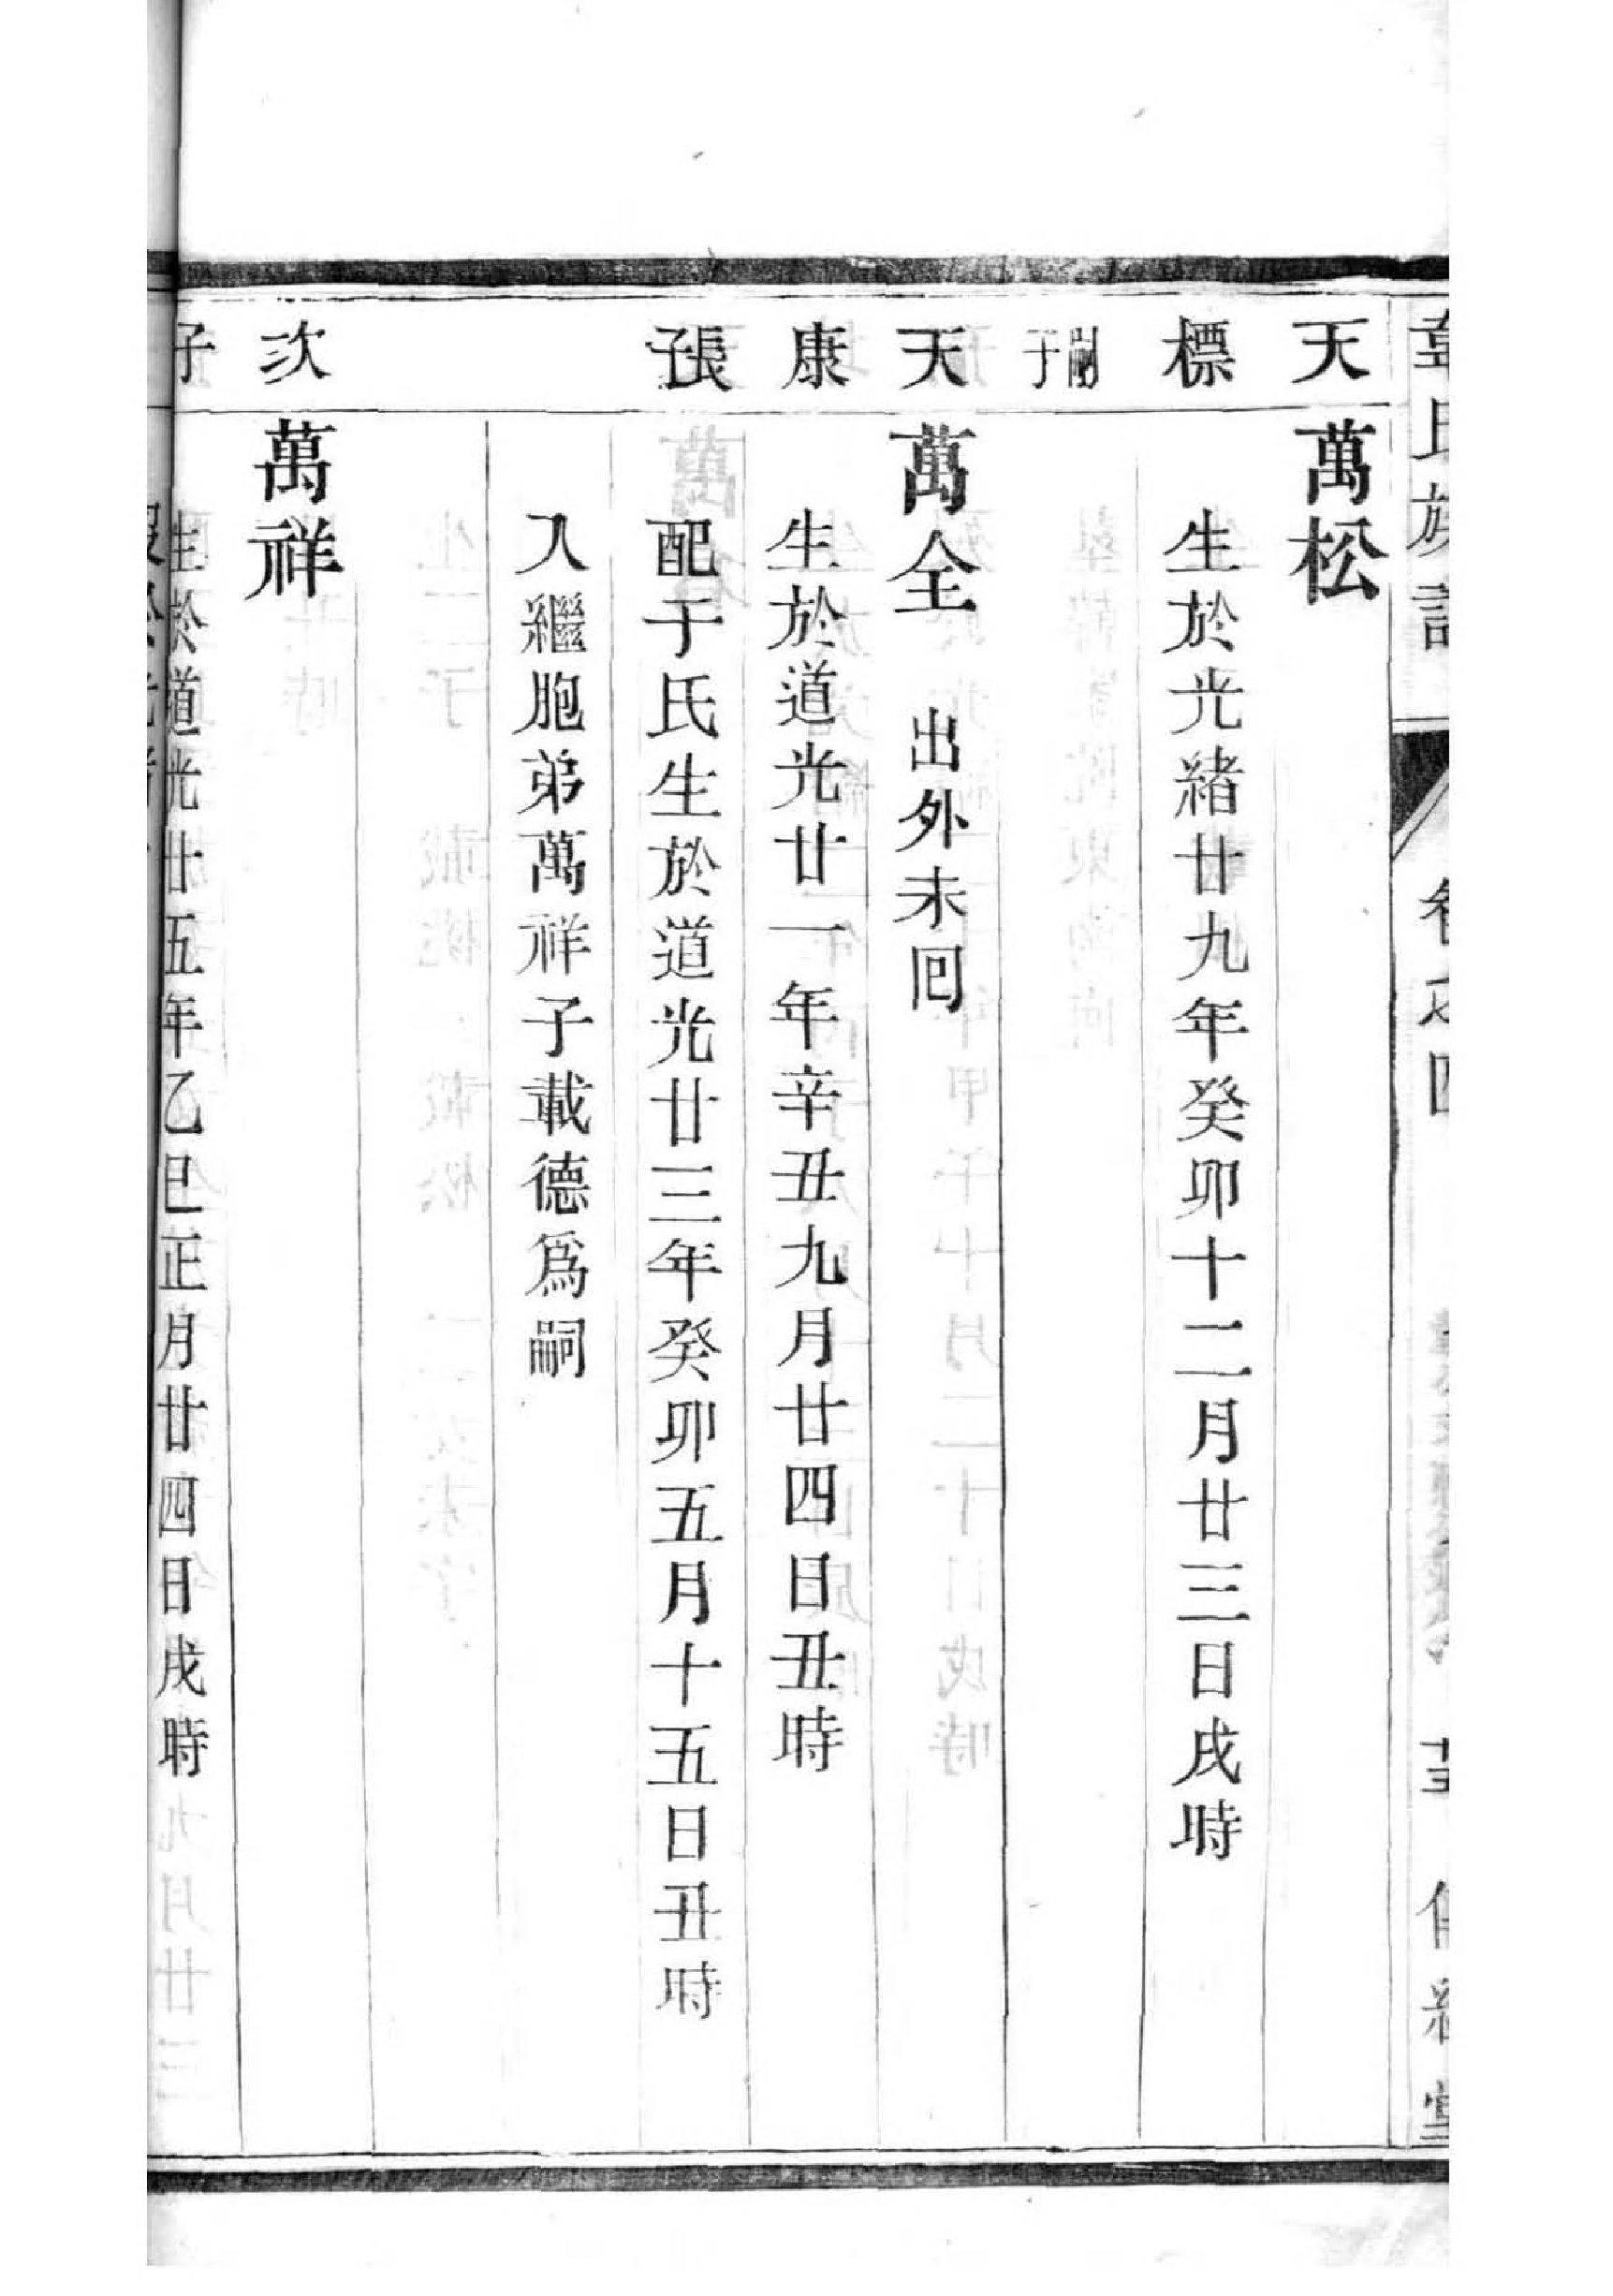 氏族譜 卷之四
天 萬松
標 生於光緒廿九年癸卯十二月廿三日戌時
嗣子
天 萬全 出外未囘
康 生於道光廿一年辛丑九月廿四日丑時
長子 配于氏生於道光廿三年癸卯五月十五日丑時
入繼胞弟萬祥子載德爲嗣
次 萬祥
子 生於道光廿五年乙巳正月廿四日戌時